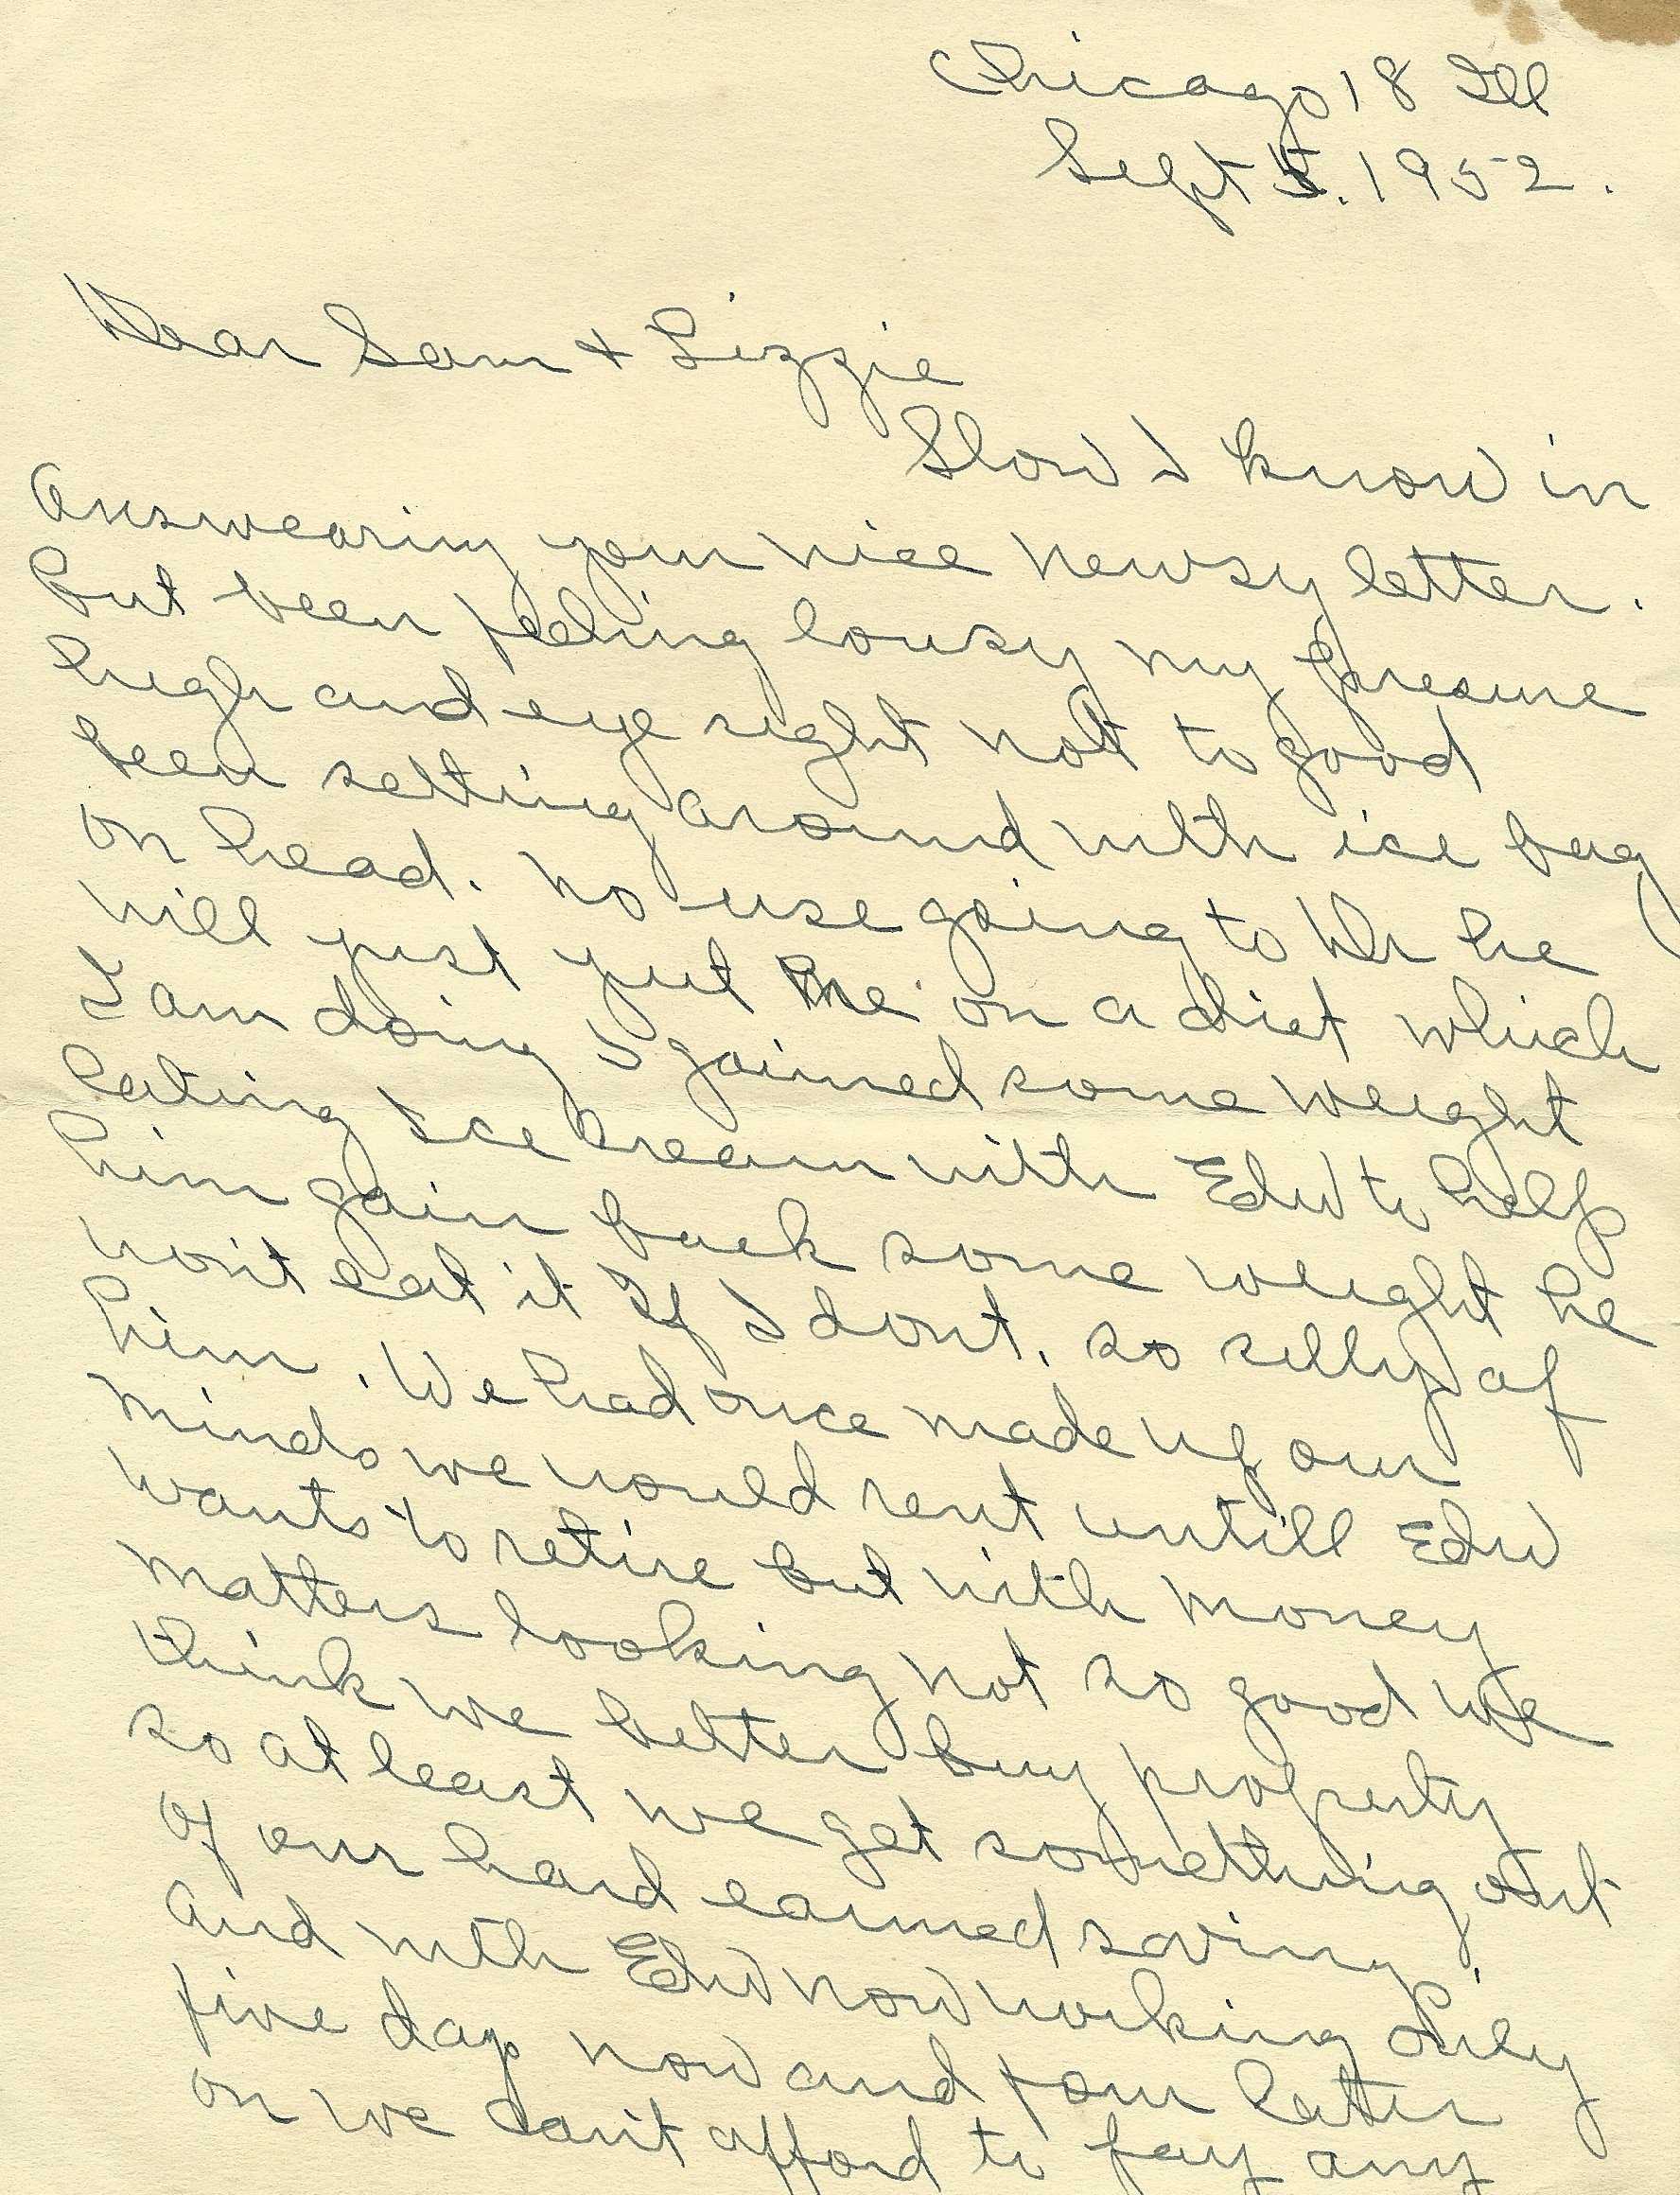 Chicago 18 Ill
Sept 5. 1952.
Dear Sam + Lizzie
Slow I know in
answearing your nice newsy letter.
but been feeling lousy my presure
high and eye sight not to good
been setting around with ice bag
on head. no use going to Dr he
will just put me on a diet which
I am doing I gained some weight
eating Ice Cream with Edw to help
him gain back some weight he
won't eat it If I dont. so silly of
him. We had once made up our
minds we would rent untill Edw
wants to retire but with money
matters looking not so good we
think we better buy property
so at least we get something out
of our hard earned saving.
And with Edw now working only
five days now and four later
on we can't afford to pay any